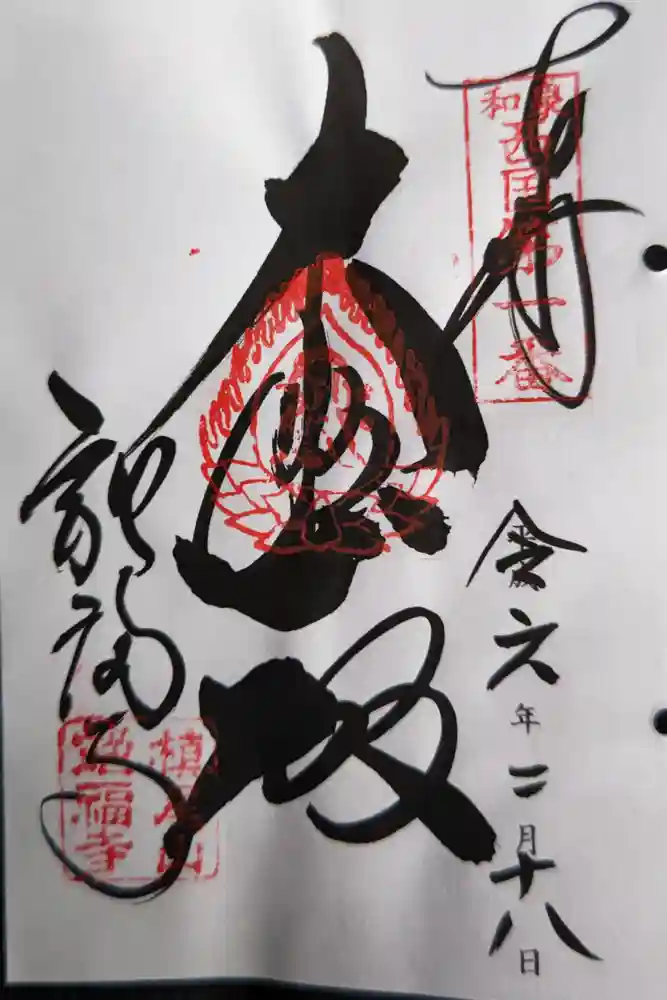 奉拝
和泉
西国第一番
大悲殿
施福寺
槇尾山
施福寺
六年二月十八日